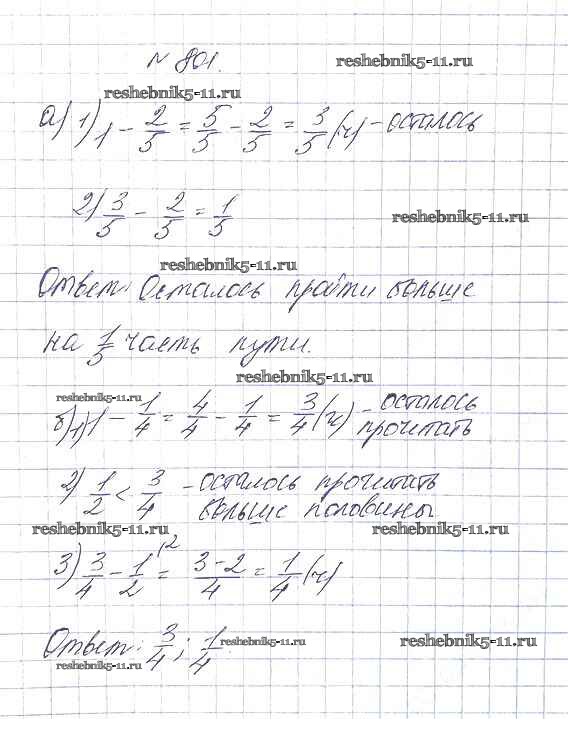 N 801.
reshebnik5-11.ru
reshebnik5-11.ru
а) 1) 1 - 2/5 = 5/5 - 2/5 = 3/5 (ч) - осталось
2) 3/5 - 2/5 = 1/5
reshebnik5-11.ru
reshebnik5-11.ru
Ответ: Осталось пройти больше
на 1/5 часть пути.
reshebnik5-11.ru
reshebnik5-11.ru
б) 1) 1 - 1/4 = 4/4 - 1/4 = 3/4 (ч) - осталось
прочитать
2) 1/2 < 3/4 - осталось прочитать
больше половины
reshebnik5-11.ru
reshebnik5-11.ru
3) 3/4 - 1/2 (2 = 3-2/4 = 1/4 (ч)
Ответ: 3/4; 1/4.
reshebnik5-11.ru
reshebnik5-11.ru
reshebnik5-11.ru